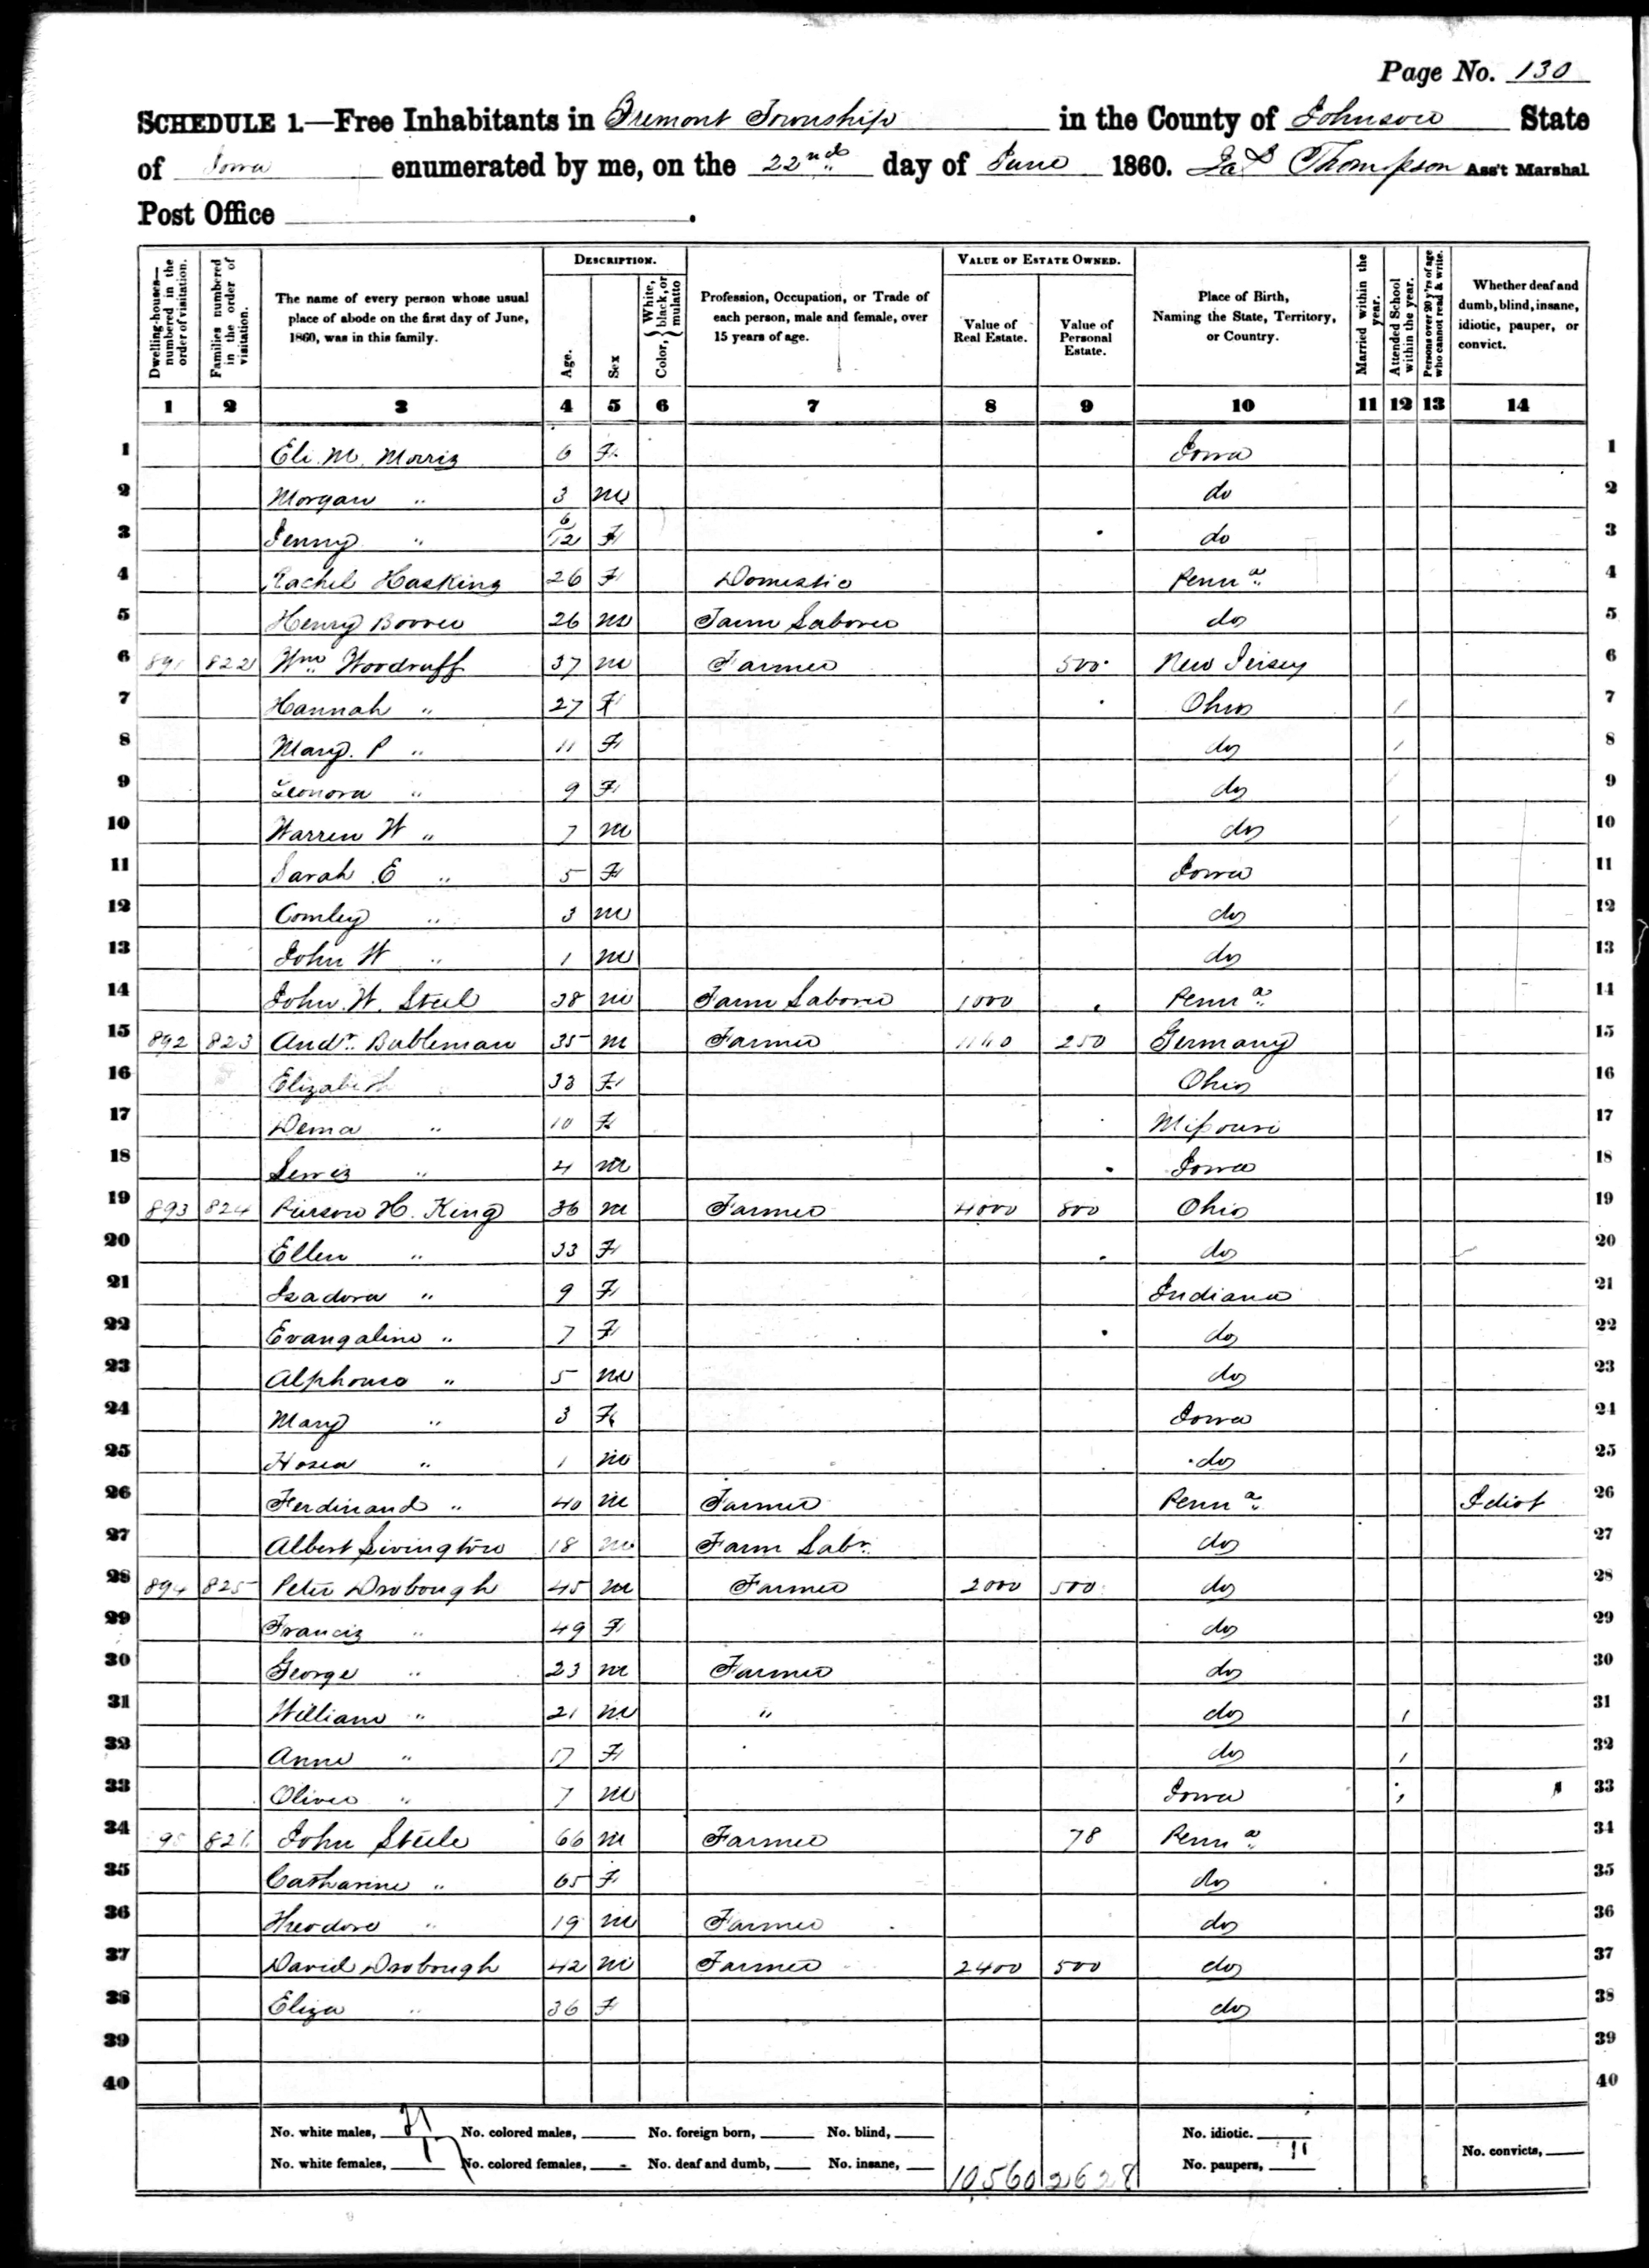 Page No. 130
SCHEDULE 1.—Free Inhabitants in Fremont Township in the County of Johnson State
of Iowa enumerated by me, on the 22nd day of June 1860. Jas Thompson Ass't Marshal
Post Office .
Dwelling-houses—numbered in the order of visitation.
Families numbered in the order of visitation.
The name of every person whose usual place of abode on the first day of June, 1860, was in this family.
DESCRIPTION.
Age.
Sex
Color, White, black, or mulatto
Profession, Occupation, or Trade of each person, male and female, over 15 years of age.
VALUE OF ESTATE OWNED.
Value of Real Estate.
Value of Personal Estate.
Place of Birth, Naming the State, Territory, or Country.
Married within the year.
Attended School within the year.
Persons over 20 y'rs of age who cannot read & write.
Whether deaf and dumb, blind, insane, idiotic, pauper, or convict.
1 2 3 4 5 6 7 8 9 10 11 12 13 14
1 Eli. M. Morris 6 F Iowa 1
2 Morgan " 3 m do 2
3 Jenny " 6/12 F do 3
4 Rachel Haskins 26 F Domestic Penna 4
5 Henry 26 m Farm Laborer do 5
6 891 822 Wm Woodruff 37 m Farmer 500 New Jersey 6
7 Hannah " 27 F Ohio / 7
8 Mary. P " 11 F do / 8
9 Leonora " 9 F do / 9
10 Warren W " 7 m do / 10
11 Sarah E " 5 F Iowa 11
12 Comley " 3 m do 12
13 John W " 1 m do 13
14 John. W. Steel 38 m Farm Laborer 1000 Penna 14
15 892 823 Andr. Bableman 35 m Farmer 1160 250 Germany 15
16 Elizabeth 33 F Ohio 16
17 Dema " 10 F Missouri 17
18 Lewis " 4 m Iowa 18
19 893 824 Pierson H. King 36 m Farmer 4000 800 Ohio 19
20 Ellen " 33 F do 20
21 Isadora " 9 F Indiana 21
22 Evangaline " 7 F do 22
23 Alphonso " 5 m do 23
24 Mary " 3 F Iowa 24
25 Hosea " 1 m do 25
26 Ferdinand " 40 m Farmer Penna Idiot 26
27 Albert Livington 18 m Farm Labr. do 27
28 894 825 Peter Drobough 45 m Farmer 2000 500 do 28
29 Francis " 49 F do 29
30 George " 23 m Farmer do 30
31 William " 21 m " do / 31
32 Anne " 17 F do / 32
33 Oliver " 7 m Iowa / 33
34 95 826 John Steele 66 m Farmer 78 Penna 34
35 Catharine " 65 F do 35
36 Theodore " 19 m Farmer do 36
37 David Drobough 42 m Farmer 2400 500 do 37
38 Eliza " 36 F do 38
39 39
40 40
No. white males, 21 No. colored males, No. foreign born, No. blind, No. idiotic.
No. white females, 17 No. colored females, No. deaf and dumb, No. insane, 10,560 2628 No. paupers, 11 No. convicts,